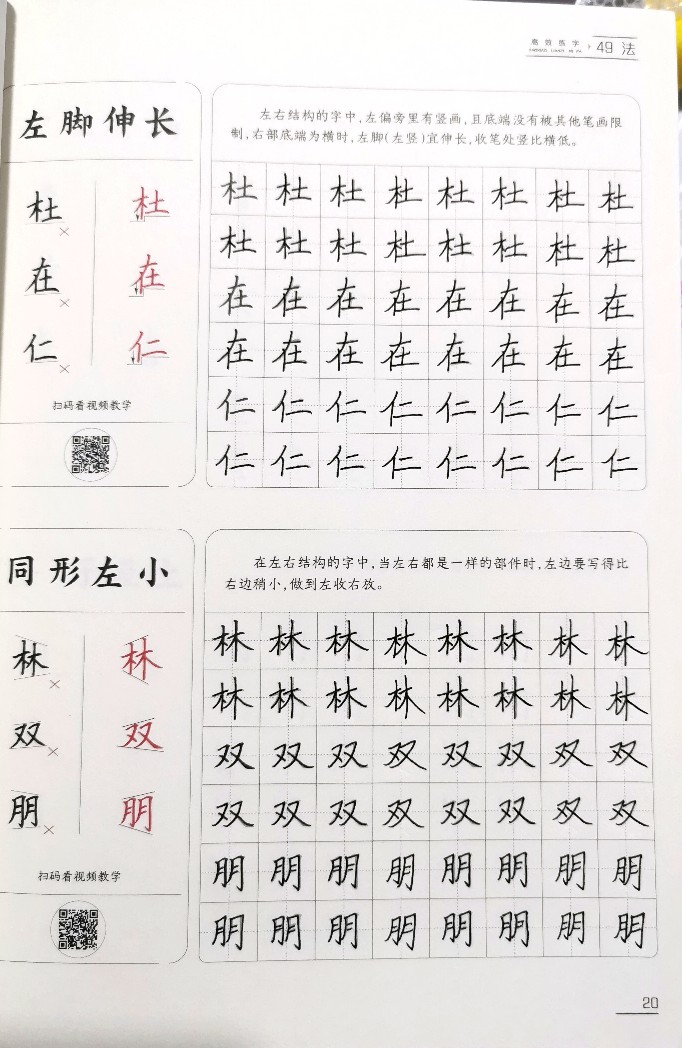 高效练字 49 法
左脚伸长
左右结构的字中,左偏旁里有竖画,且底端没有被其他笔画限
制,右部底端为横时,左脚(左竖)宜伸长,收笔处竖比横低。
杜 × 杜
在 × 在
仁 × 仁
扫码看视频教学
杜 杜 杜 杜 杜 杜 杜 杜
杜 杜 杜 杜 杜 杜 杜 杜
在 在 在 在 在 在 在 在
在 在 在 在 在 在 在 在
仁 仁 仁 仁 仁 仁 仁 仁
仁 仁 仁 仁 仁 仁 仁 仁
同形左小
在左右结构的字中,当左右都是一样的部件时,左边要写得比
右边稍小,做到左收右放。
林 × 林
双 × 双
朋 × 朋
扫码看视频教学
林 林 林 林 林 林 林 林
林 林 林 林 林 林 林 林
双 双 双 双 双 双 双 双
双 双 双 双 双 双 双 双
朋 朋 朋 朋 朋 朋 朋 朋
朋 朋 朋 朋 朋 朋 朋 朋
20